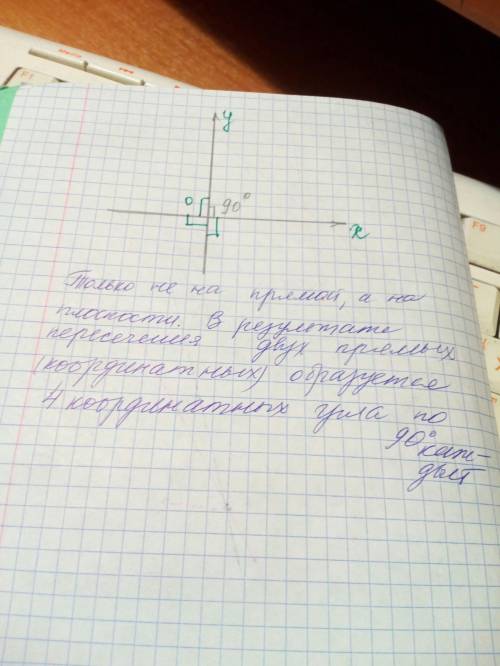 F1
F9
y
0
90°
x
Только не на прямой, а на
плоскости. В результате
пересечения двух прямых
(координатных) образуется
4 координатных угла по
90° каж-
дый